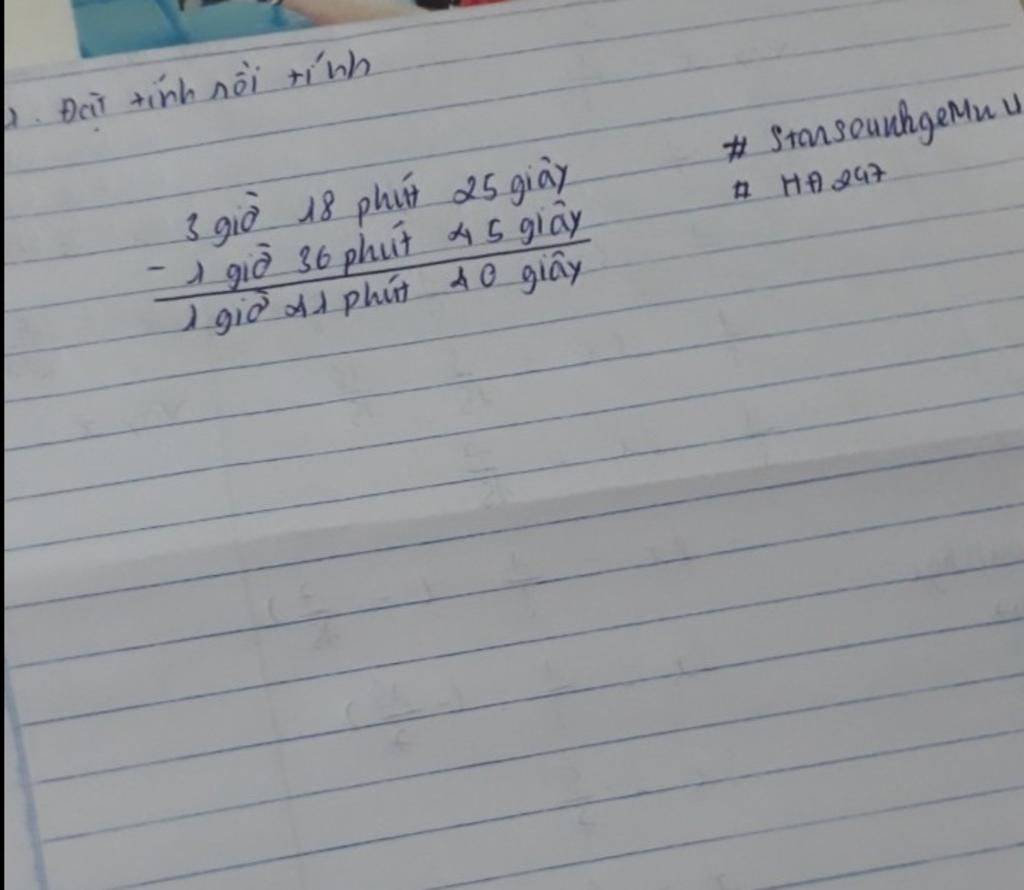 1. Đặt tính rồi tính
3 giờ 18 phút 25 giây
- 1 giờ 36 phút 45 giây
1 giờ 41 phút 40 giây
# HA247